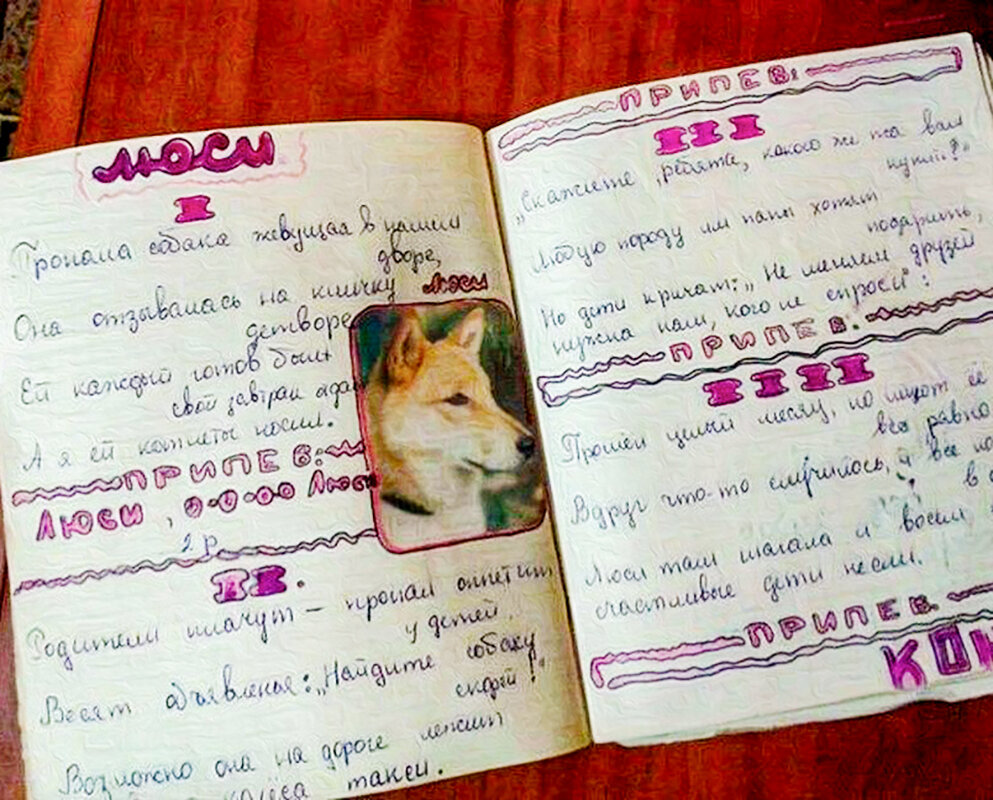 ЛЮСИ
I
Пропала собака живущая в нашем
дворе,
Она отзывалась на кличку Люси
детворе
Ей каждый готов был
свой завтрак отда
А я ей котлеты носил.
ПРИПЕВ:
Люси, о-о-о-о Люси
2 р.
II.
Родители плачут – пропал аппетит
у детей.
Весят объявленья: „Найдите собаку
скорей!"
Возможно она на дороге лежит
колёса такси.
ПРИПЕВ:
III
„Скажите, ребята, какого же пса вам
купить?"
Любую породу им папы хотят
подарить,
Но дети кричат: „Не меняем друзей
нужна нам, кого не спроси":
ПРИПЕВ.
IIII
Прошёл целый месяц, но ищут её
всё равно
Вдруг что-то случилось, и все по
в о
Люси там шагала и восем
счастливые дети несли.
ПРИПЕВ.
КОН